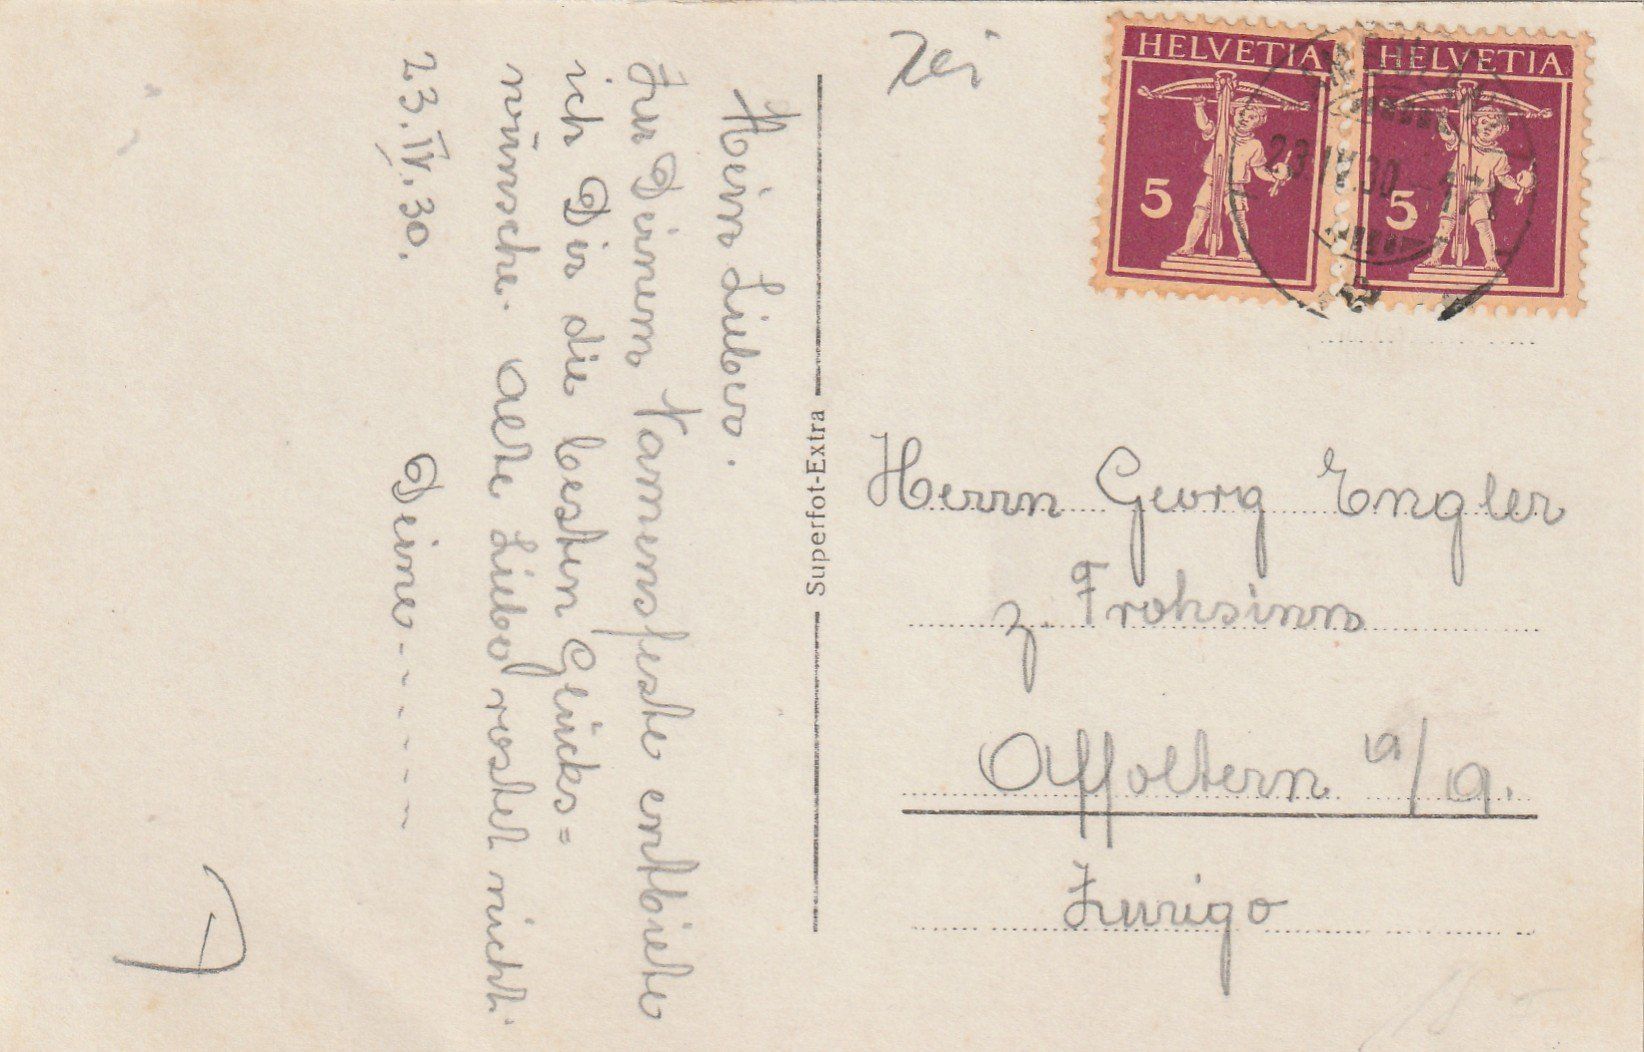 Mein Lieber.
Zu Deinem Namensfeste entbiete
ich Dir die besten Glücks=
wünsche. Alte Liebe rostet nicht.
23.IV.30.
Deine - - - - -
Superfot-Extra
HELVETIA
5
HELVETIA
5
23.IV.30.
Herrn Georg Engler
z. Frohsinn
Affoltern a/A.
Zurigo